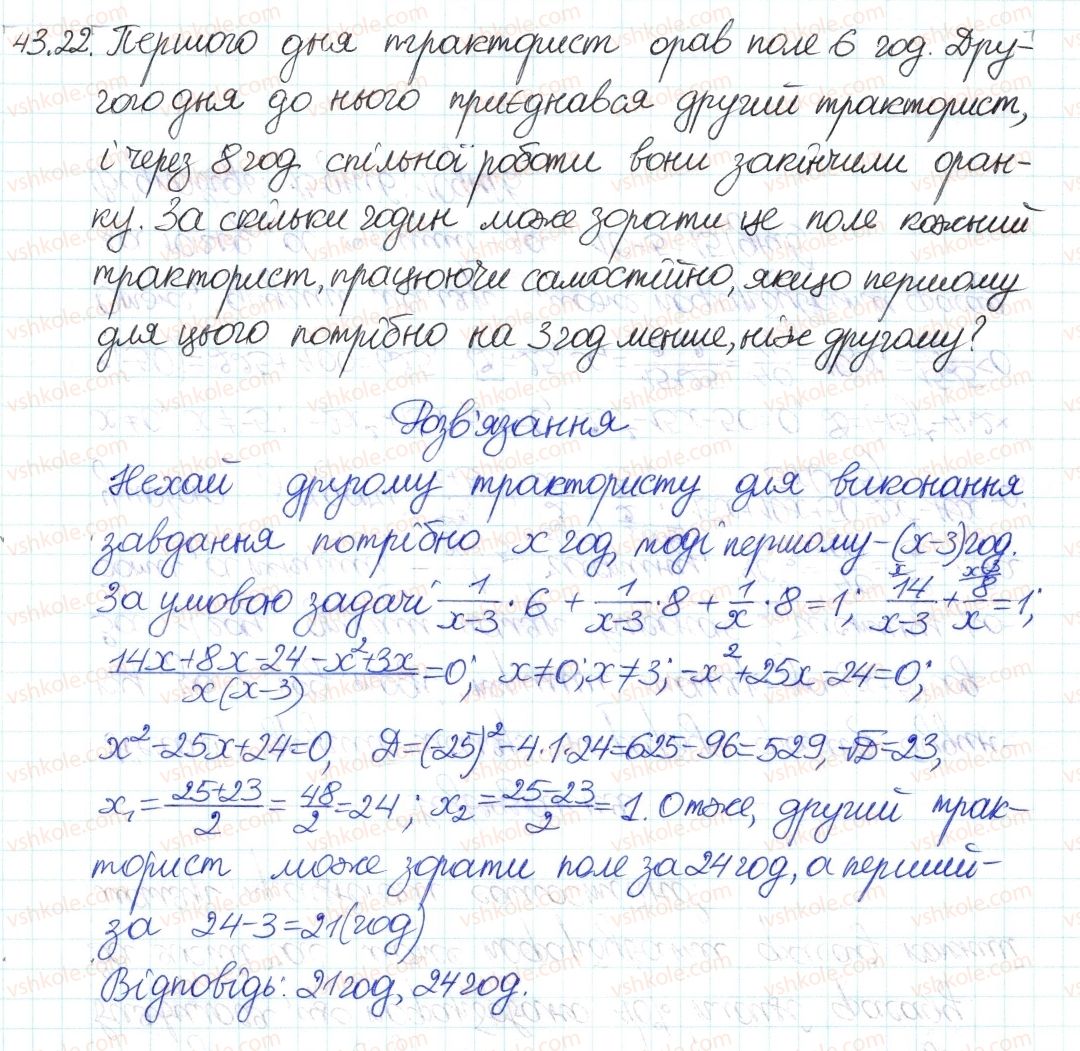 43.22. Першого дня тракторист орав поле 6 год. Дру-
гого дня до нього приєднався другий тракторист,
і через 8 год спільної роботи вони закінчили оран-
ку. За скільки годин може зорати це поле кожний
тракторист, працюючи самостійно, якщо першому
для цього потрібно на 3 год менше, ніж другому?
Розв'язання
Нехай другому трактористу для виконання
завдання потрібно x год, тоді першому - (x-3) год.
За умовою задачі 1/(x-3) · 6 + 1/(x-3) · 8 + 1/x · 8 = 1; 14/(x-3) + 8/x = 1;
(14x+8x-24-x²+3x)/(x(x-3)) = 0; x≠0; x≠3; -x²+25x-24=0;
x²-25x+24=0, D=(-25)²-4·1·24=625-96=529, √D=23,
x₁ = (25+23)/2 = 48/2 = 24; x₂ = (25-23)/2 = 1. Отже, другий трак-
торист може зорати поле за 24 год, а перший -
за 24-3=21(год)
Відповідь: 21 год, 24 год.
vshkole.com